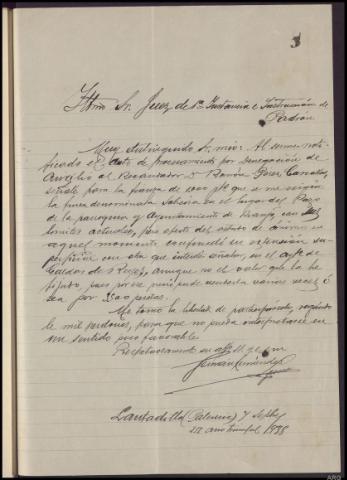 3
Iltmo Sr. Juez de 1ª Instancia e Instrucción de
Padrón
Muy distinguido Sr. mio: Al serme noti-
ficado el Auto de procesamiento por denegación de
Auxilio al Recaudador D. Ramón
señalé para la fianza de 1000 pts que se me exigía
la finca denominada en el lugar del Pazo
de la parroquia y Ayuntamiento de
limites actuales, por efecto del estado de ánimo en
aquel momento confundí su extensión su-
perficial con otra que intenté señalar, en el aytº de
Caldas de Reyes, aunque no el valor que la he
fijado, pues por ese puede venderla varias veces o
sea por pesetas.
Me tomo la libertad de participárselo, rogándo
le mil perdones, para que no pueda interpretarse en
un sentido poco favorable.
Respetuosamente
Lantadilla (Palencia) 7 Sepbre
III año triunfal 1938